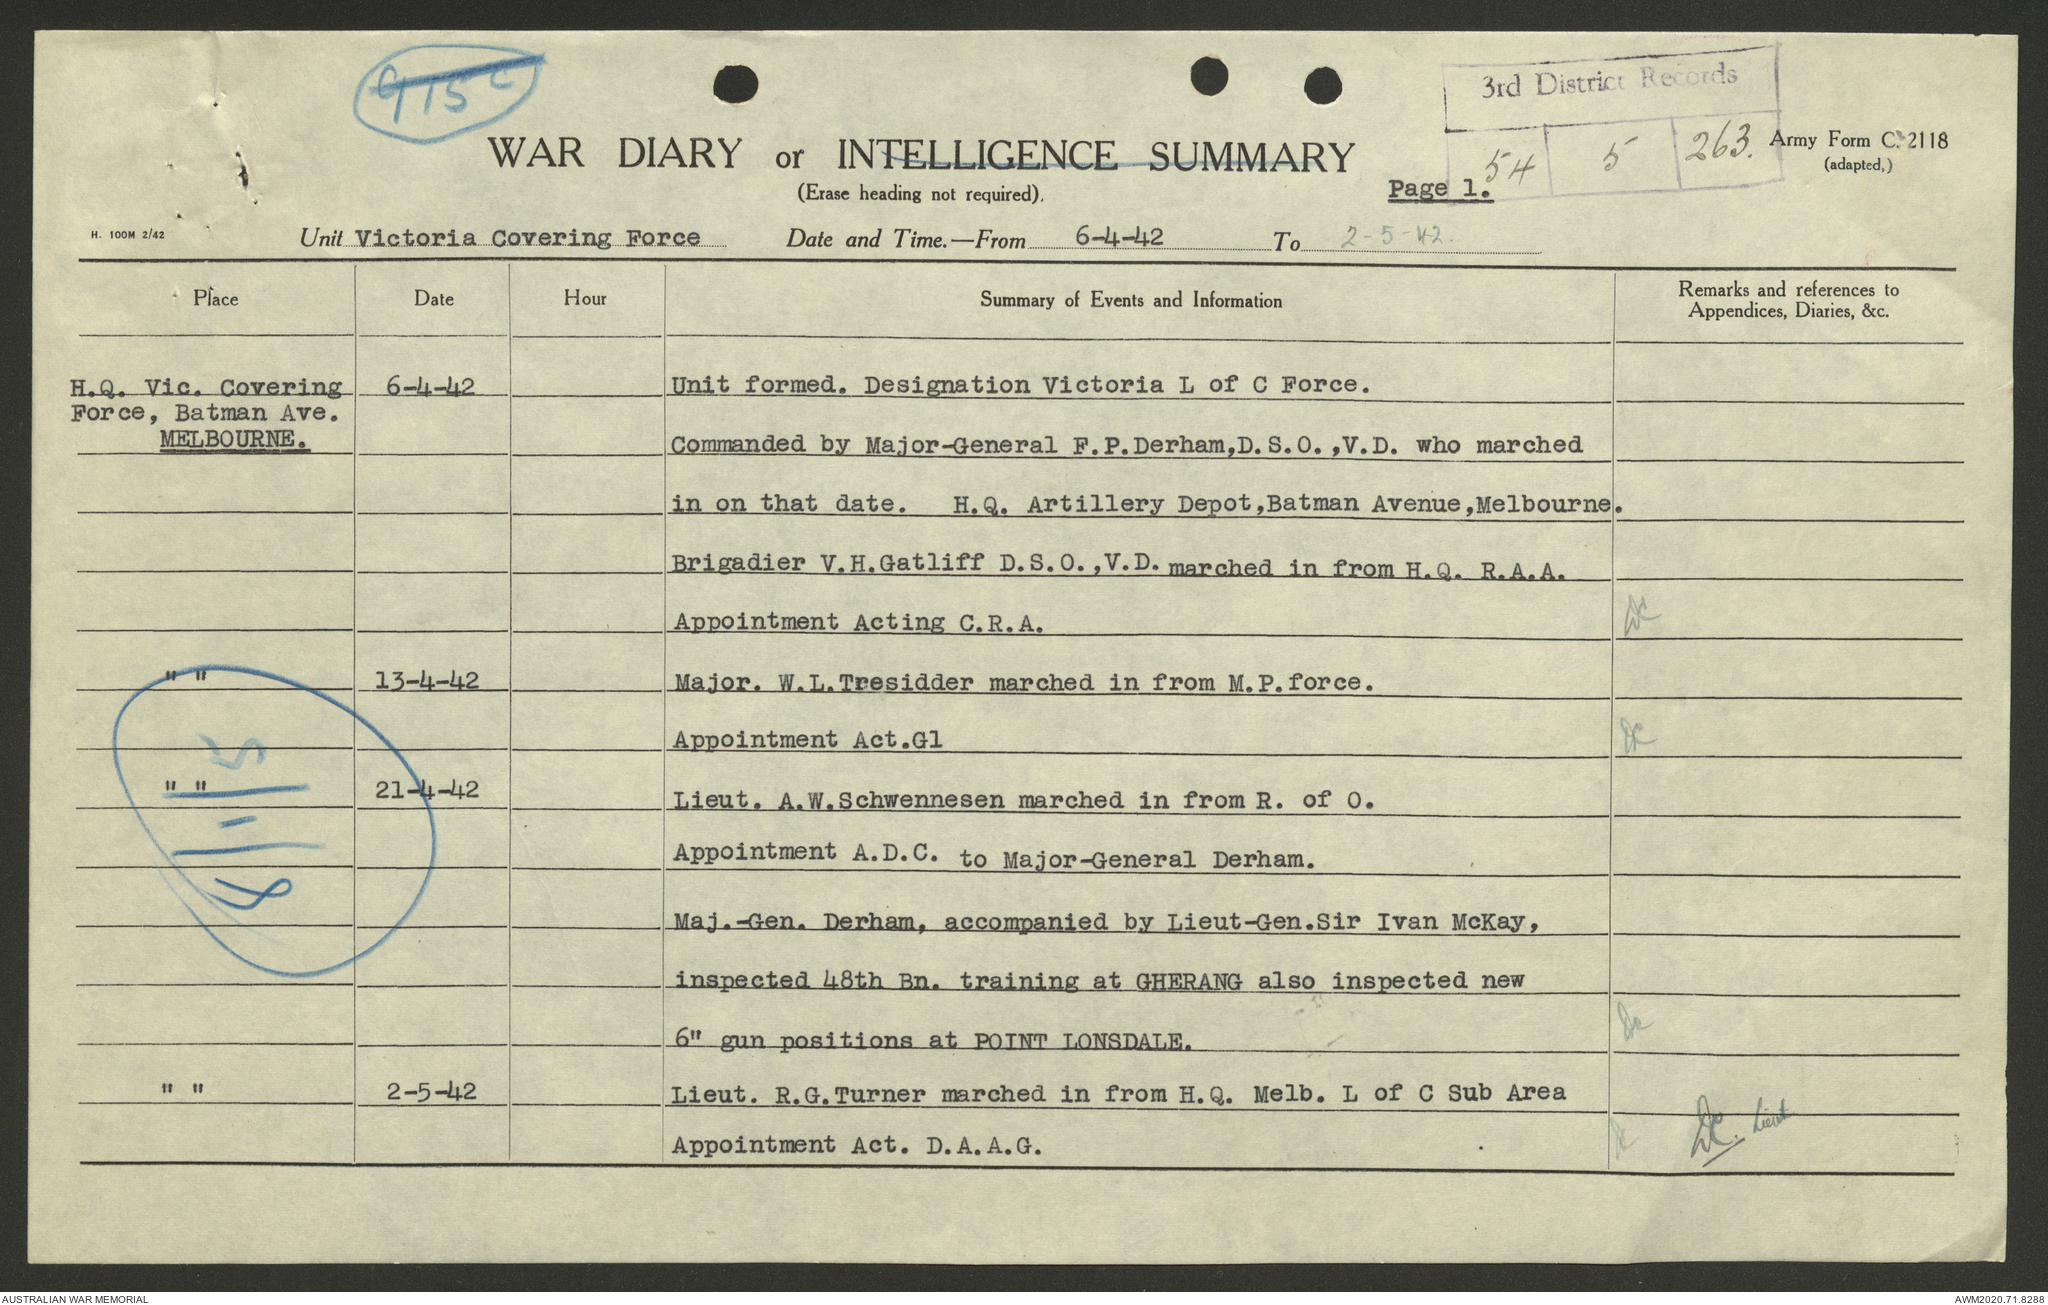 3rd District Records
54 5 263.
Army Form C. 2118
(adapted,)
WAR DIARY or INTELLIGENCE SUMMARY
(Erase heading not required).
Page 1.
H. 100M 2/42
Unit Victoria Covering Force Date and Time.—From 6-4-42 To 2-5-42.
Place Date Hour Summary of Events and Information Remarks and references to
Appendices, Diaries, &c.
H.Q. Vic. Covering 6-4-42 Unit formed. Designation Victoria L of C Force.
Force, Batman Ave.
MELBOURNE. Commanded by Major-General F.P.Derham,D.S.O.,V.D. who marched
in on that date. H.Q. Artillery Depot,Batman Avenue,Melbourne.
Brigadier V.H.Gatliff D.S.O.,V.D. marched in from H.Q. R.A.A.
Appointment Acting C.R.A.
" " 13-4-42 Major. W.L.Tresidder marched in from M.P.force.
Appointment Act.G1
" " 21-4-42 Lieut. A.W.Schwennesen marched in from R. of O.
Appointment A.D.C. to Major-General Derham.
Maj.-Gen. Derham, accompanied by Lieut-Gen.Sir Ivan McKay,
inspected 48th Bn. training at GHERANG also inspected new
6" gun positions at POINT LONSDALE.
" " 2-5-42 Lieut. R.G.Turner marched in from H.Q. Melb. L of C Sub Area
Lieut
Appointment Act. D.A.A.G.
AUSTRALIAN WAR MEMORIAL AWM2020.71.8288